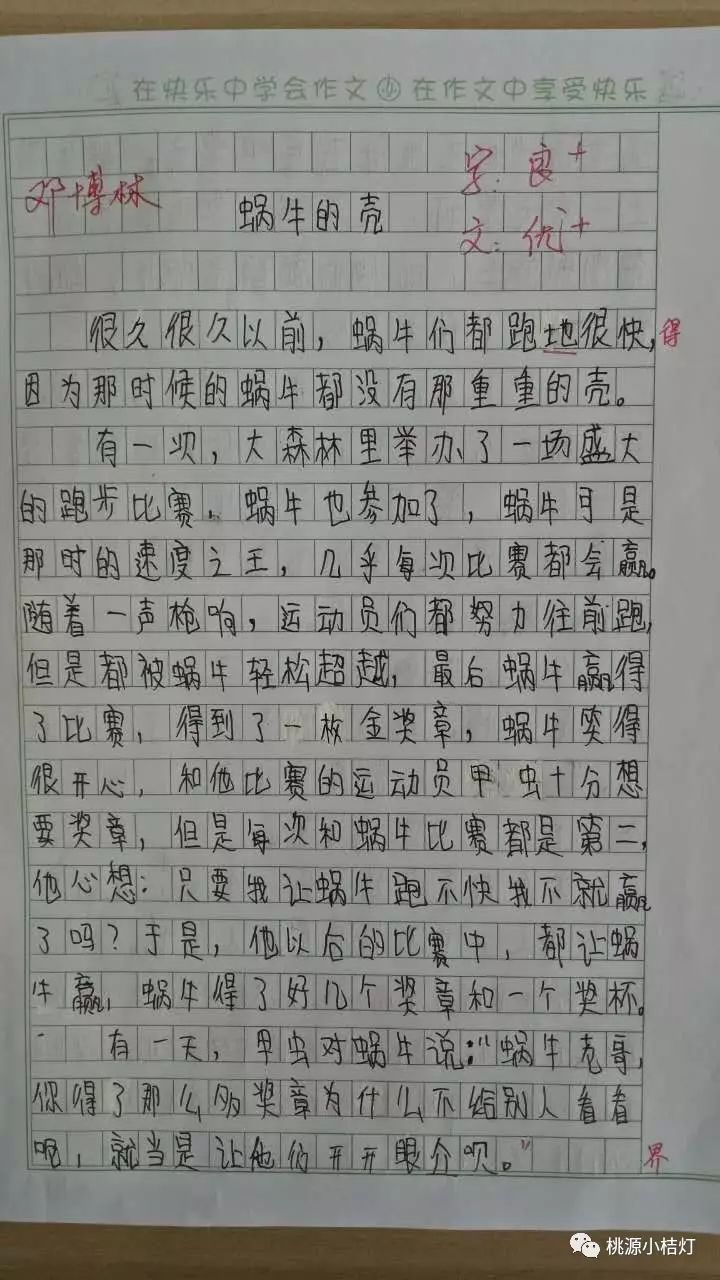 在快乐中学会作文 小 在作文中享受快乐
字：良+
邓博林
蜗牛的壳
文：优+
很久很久以前，蜗牛们都跑地很快，得
因为那时候的蜗牛都没有那重重的壳。
有一次，大森林里举办了一场盛大
的跑步比赛，蜗牛也参加了，蜗牛可是
那时的速度之王，几乎每次比赛都会赢。
随着一声枪响，运动员们都努力往前跑，
但是都被蜗牛轻松超越，最后蜗牛赢得
了比赛，得到了一枚金奖章，蜗牛笑得
很开心，和他比赛的运动员甲虫十分想
要奖章，但是每次和蜗牛比赛都是第二，
他心想：只要我让蜗牛跑不快我不就赢
了吗？于是，他以后的比赛中，都让蜗
牛赢，蜗牛得了好几个奖章和一个奖杯。
有一天，甲虫对蜗牛说：“蜗牛老哥，
你得了那么多奖章为什么不给别人看看
呢，就当是让他们开开眼介呗。”界
桃源小桔灯